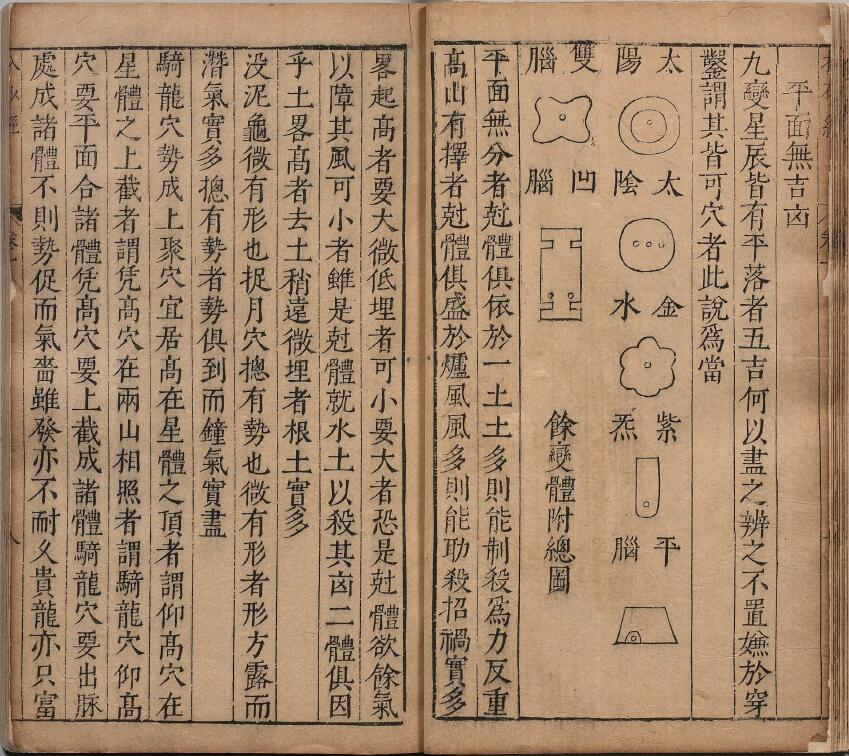 平面無吉凶
九變星辰皆有平落者五吉何以盡之辨之不置嫌於穿
鑿謂其皆可穴者此說為當
太陽
太陰
金水
紫炁
平腦
雙腦
凹腦
餘變體附總圖
平面無分者尅體俱依於一土土多則能制殺為力反重
高山有擇者尅體俱盛於爐風風多則能助殺招禍實多
畧起高者要大微低埋者可小要大者恐是尅體欲餘氣
以障其風可小者雖是尅體就水土以殺其凶二體俱因
乎土畧高者去土稍遠微埋者根土實多
没泥龜微有形也捉月穴摠有勢也微有形者形方露而
潛氣實多摠有勢者勢俱到而鐘氣實盡
騎龍穴勢成上聚穴宜居高在星體之頂者謂仰高穴在
星體之上截者謂凭高穴在兩山相照者謂騎龍穴仰高
穴要平面合諸體凭高穴要上截成諸體騎龍穴要出脉
處成諸體不則勢促而氣嗇雖發亦不耐久貴龍亦只富